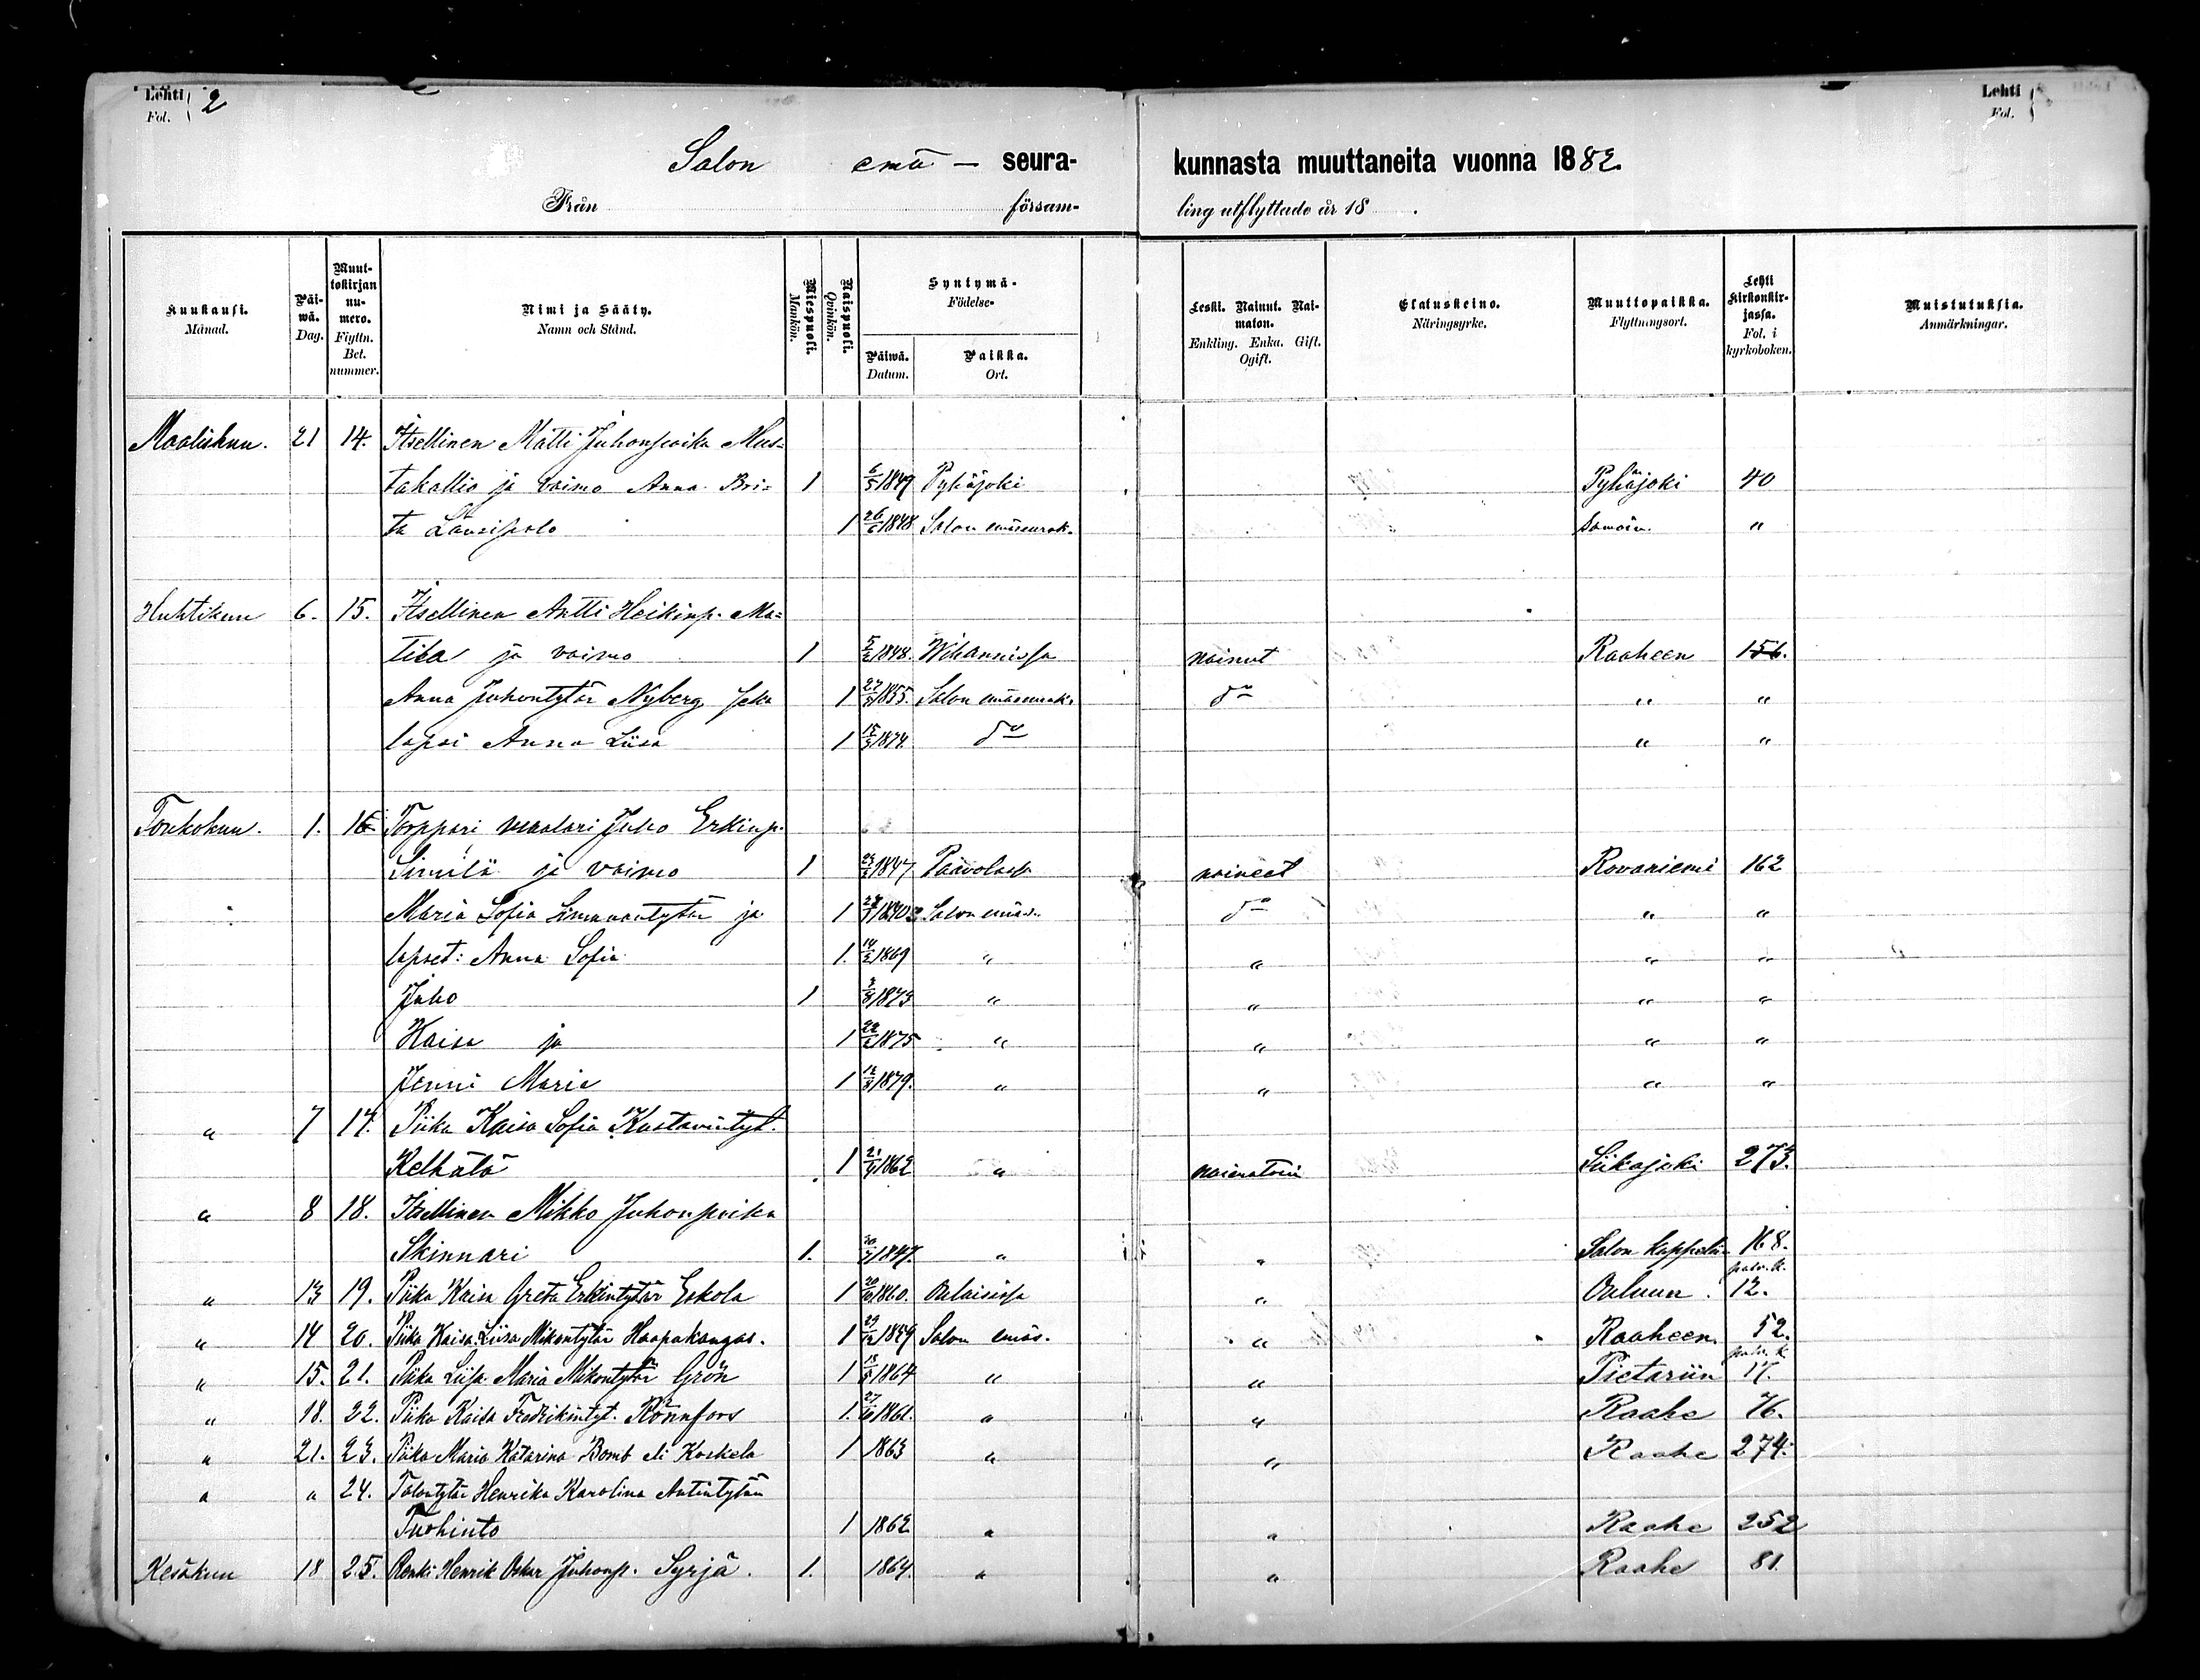 Lehti 2
Fol.
Lehti
Fol.
Salon emä – seura- kunnasta muuttaneita vuonna 1882.
Från församling utflyttade år 18 .
Kuukausi. Månad.
Päiwä. Dag.
Muuttokirjan numero. Flyttn. Bet. nummer.
Nimi ja Sääty. Namn och Stånd.
Miespuoli. Mankön.
Naispuoli. Qvinkön.
Syntymä- Födelse-
Päiwä. Datum.
Paikka. Ort.
Leski. Nainut. Naimaton. Enkling. Enka. Gift. Ogift.
Elatuskeino. Näringsyrke.
Muuttopaikka. Flyttningsort.
Lehti kirkonkirjassa. Fol. i kyrkoboken.
Muistutuksia. Anmärkningar.
Maaliskuu. 21 14. Itsellinen Matti Juhonpoika Mus-
takallio ja vaimo Anna Bri- 1 6/5 1849 Pyhäjoki Pyhäjoki 40
ta Länsipolo 1 26/6 1848 Salon emäseurak. Samoin. "
Huhtikuu 6. 15. Itsellinen Antti Heikinp. Ma-
tila ja vaimo 1 5/2 1848. Wihannissa nainut Raaheen 156.
Anna Juhontytär Nyberg seka 1 1855. Salon emäseurak. do " "
lapsi Anna Liisa 1 1874. do " "
Toukokuu. 1. 16 Torppari maalari Juho Erkinp.
Simila ja vaimo 1 1847 Paavolassa naineet Rovaniemi 162
Maria Sofia Simuantytär ja 1 1840 Salon emäs. do " "
lapset: Anna Sofia 1. 14/2 1869 " " " "
Juho 1 1873 " " " "
Kaisa ja 1 1875 " " " "
Jenni Maria 1 1879. " " " "
" 7 17. Piika Kaisa Sofia Kustavintyt.
Kelhälä 1 1862 " naimatoin Siikajoki 273.
" 8 18. Itsellinen Mikko Juhonpoika
Skinnari 1. 1847. " " Salon kappeliin 168.
" 13 19. Piika Kaisa Greta Erkintytär Eskola 1 1860. Oulaisissa " Ouluun. palv. k. 12.
" 14 20. Piika Kaisa Liisa Mikontytär Haapakangas. 1 1859 Salon emäs. " Raaheen 52.
" 15. 21. Piika Liisa Maria Mikontytär Grön 1 1864 " " Pietariin palv. k. 17.
" 18. 22. Piika Kaisa Fredrikintyt. Rönnfors 1. 1861. " " Raahe 76.
" 21. 23. Piika Maria Katarina Bomb eli Koskela 1 1863 " " Raahe 274.
" " 24. Talontytär Henrika Karolina Antintytär
Tuohinto 1 1862 " " Raahe 252
Kesäkuu 18 25. Renki Henrik Oskar Juhonp. Syrjä. 1. 1864. " " Raahe 81.